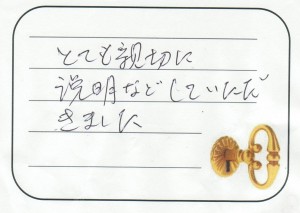 とても親切に
説明などしていただ
きました